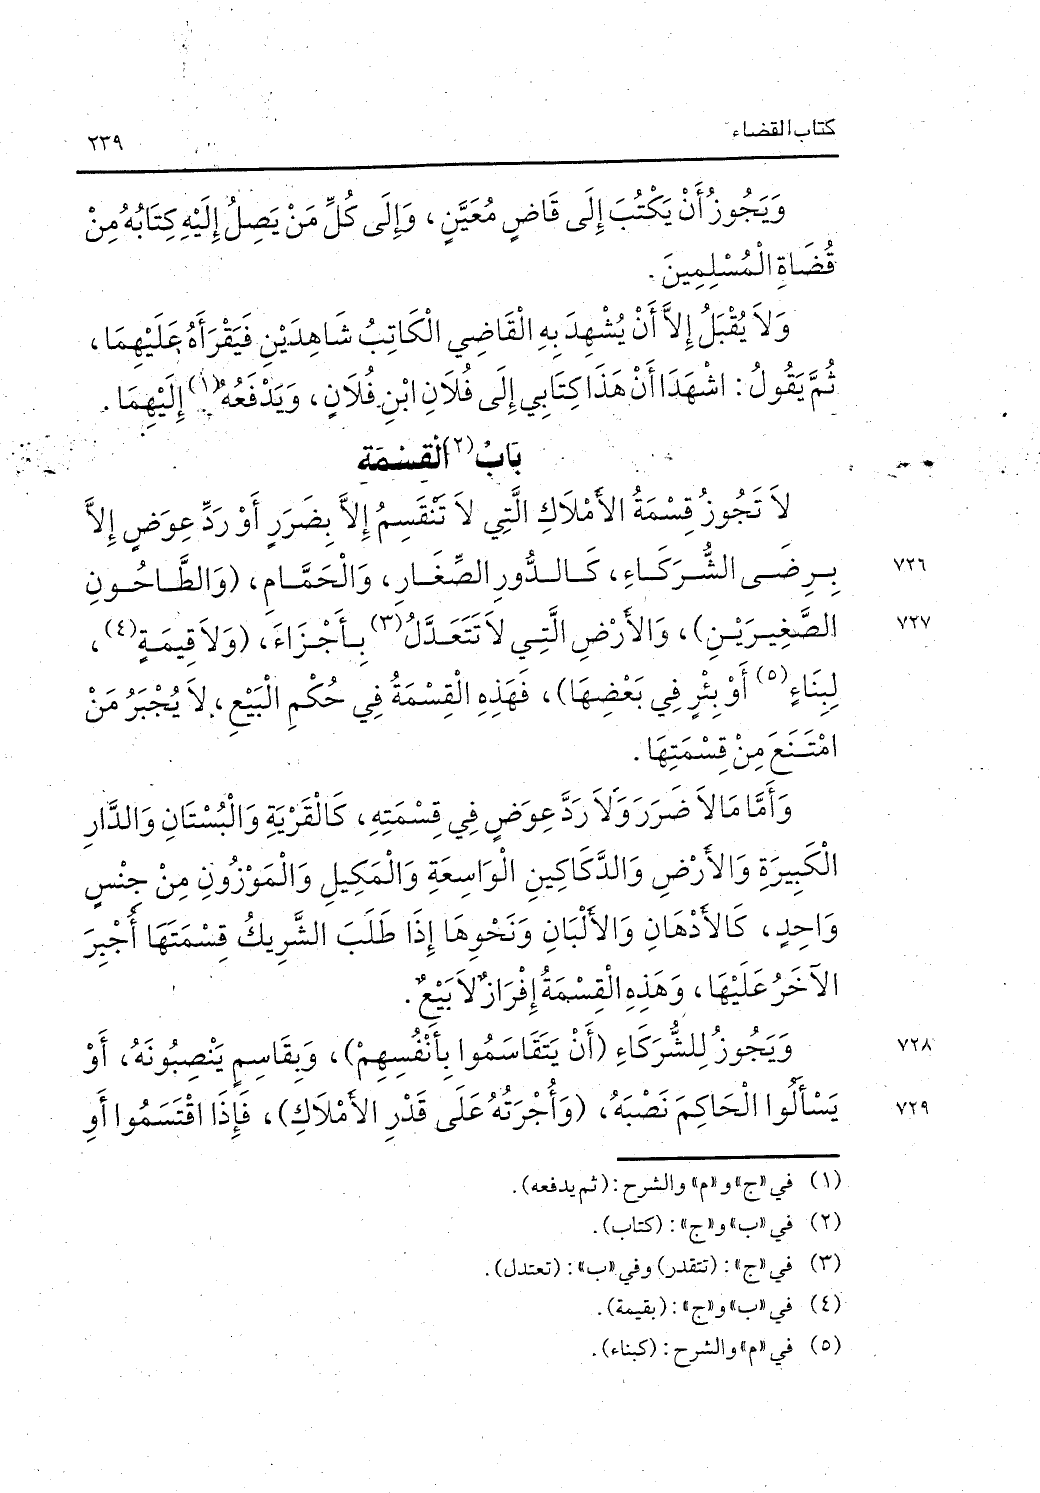 كتاب القضاء
٢٣٩
وَيَجُوزُ أَنْ يَكْتُبَ إِلَى قَاضٍ مُعَيَّنٍ، وَإِلَى كُلِّ مَنْ يَصِلُ إِلَيْهِ كِتَابُهُ مِنْ
قُضَاةِ الْمُسْلِمِينَ.
وَلاَ يُقْبَلُ إِلاَّ أَنْ يُشْهِدَ بِهِ الْقَاضِي الْكَاتِبُ شَاهِدَيْنِ فَيَقْرَأَهُ عَلَيْهِمَا،
ثُمَّ يَقُولُ: اشْهَدَا أَنْ هَذَا كِتَابِي إِلَى فُلاَنِ ابْنِ فُلاَنٍ، وَيَدْفَعُهُ(١) إِلَيْهِمَا.
بَابُ(٢) الْقِسْمَةِ
لاَ تَجُوزُ قِسْمَةُ الأَمْلاَكِ الَّتِي لاَ تَنْقَسِمُ إِلاَّ بِضَرَرٍ أَوْ رَدِّ عِوَضٍ إِلاَّ
٧٢٦ بِرِضَى الشُّرَكَاءِ، كَالدُّورِ الصِّغَارِ، وَالْحَمَّامِ، (وَالطَّاحُونِ
٧٢٧ الصَّغِيرَيْنِ)، وَالأَرْضِ الَّتِي لاَ تَتَعَدَّلُ(٣) بِأَجْزَاءَ، (وَلاَ قِيمَةٍ(٤)،
لِبِنَاءٍ(٥) أَوْ بِئْرٍ فِي بَعْضِهَا)، فَهَذِهِ الْقِسْمَةُ فِي حُكْمِ الْبَيْعِ، لاَ يُجْبَرُ مَنْ
امْتَنَعَ مِنْ قِسْمَتِهَا.
وَأَمَّا مَا لاَ ضَرَرَ وَلاَ رَدَّ عِوَضٍ فِي قِسْمَتِهِ، كَالْقَرْيَةِ وَالْبُسْتَانِ وَالدَّارِ
الْكَبِيرَةِ وَالأَرْضِ وَالدَّكَاكِينِ الْوَاسِعَةِ وَالْمَكِيلِ وَالْمَوْزُونِ مِنْ جِنْسٍ
وَاحِدٍ، كَالأَدْهَانِ وَالأَلْبَانِ وَنَحْوِهَا إِذَا طَلَبَ الشَّرِيكُ قِسْمَتَهَا أُجْبِرَ
الآخَرُ عَلَيْهَا، وَهَذِهِ الْقِسْمَةُ إِفْرَازٌ لاَ بَيْعٌ.
٧٢٨ وَيَجُوزُ لِلشُّرَكَاءِ (أَنْ يَتَقَاسَمُوا بِأَنْفُسِهِمْ)، وَبِقَاسِمٍ يَنْصِبُونَهُ، أَوْ
٧٢٩ يَسْأَلُوا الْحَاكِمَ نَصْبَهُ، (وَأُجْرَتُهُ عَلَى قَدْرِ الأَمْلاَكِ)، فَإِذَا اقْتَسَمُوا أَوِ
(١) في «ج» و«م» والشرح: (ثم يدفعه).
(٢) في «ب» و«ج»: (كتاب).
(٣) في «ج»: (تتقدر) وفي «ب»: (تعتدل).
(٤) في «ب» و«ج»: (بقيمة).
(٥) في «م» والشرح: (كبناء).